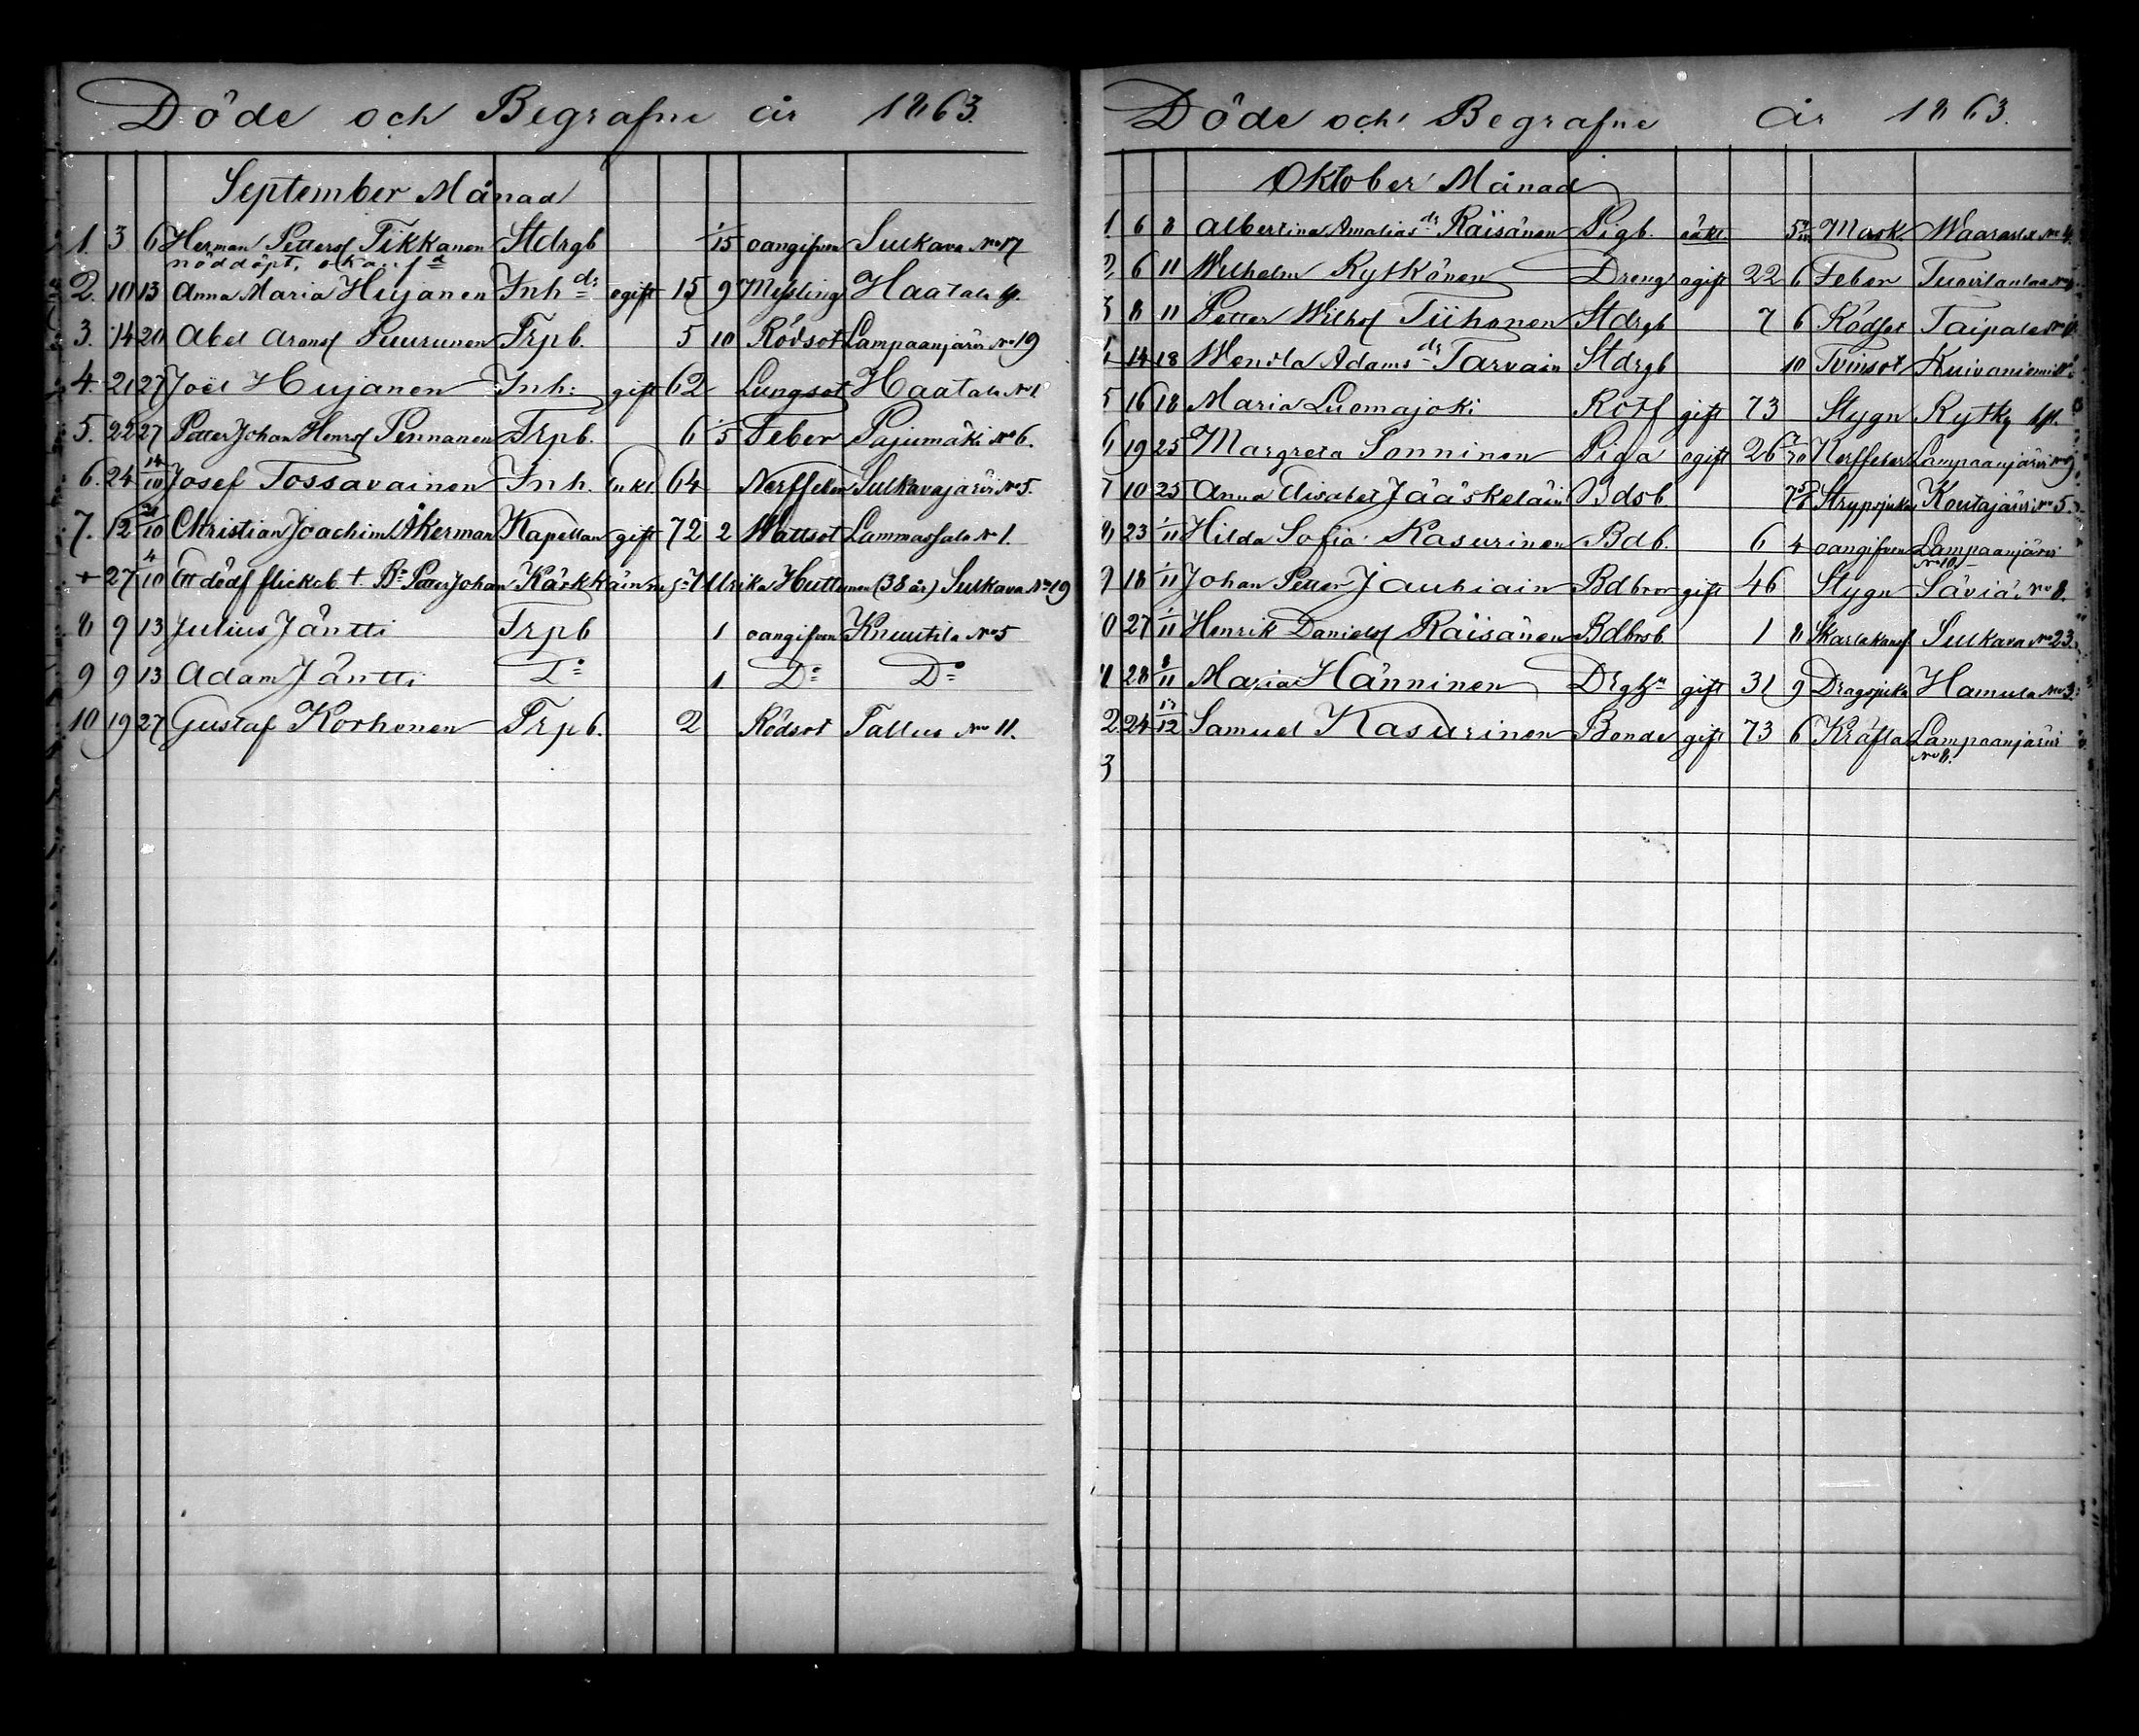 Döde och Begrafne år 1863.
September Månad
1. 3 6 Herman Pettersſ Tikkanen Stdrgb 1/15 oangifven Sulkava No 17
nöddöpt,
2. 10 13 Anna Maria Hujanen Inh dr ogift 15 9 Meſsling Haatala
3. 14 20 Abel Aronsſ Puurunen Trpb. 5 10 Rödsot Lampaanjärvi No 19
4. 21 27 Joël Hujanen Inh: gift 62 Lungsot Haatala No 1.
5. 22 27 Petter Johan Henrsſ Pennanen Trpb. 6 1/5 Feber Pajumäki No 6.
6. 24 14/10 Josef Tossavainen Inh. enkl 64 Nerffeber Sulkavajärvi No 5.
7. 12 21/10 Christian Joachim Åkerman Kapellan gift 72 2 Wattsot Lammassalo No 1.
+ 27 4/10 Ett dödf flickeb. t. Bn Petter Johan Kärkkäinen Ulrika Huttunen (38 år) Sulkava No 19
8 9 13 Julius Jäntti Trpb 1 oangifven Knuutila No 5
9 9 13 Adam Jäntti Do 1. Do Do
10 19 27 Gustaf Korhonen Trpb. 2 Rödsot Tallus No 11.
Döde och Begrafne År 1863.
Oktober Månad
1. 6 8 Albertina Amalia dr Räisänen Pigb. oäkt. Mask. No 4.
2. 6 11 Wilhelm Rytkönen Dreng ogift 22 6 Feber
3 8 11 Petter Wilhsſ Tiihonen Stdrgb 7 6 Rödsot Taipale
4 14 18 Wendla Adams dr Tarvain Stdrgb 10 Tvinsot Kuivaniemi
5 16 18 Maria Luomajoki Rotf gift 73 Stygn Rytky
6 19 25 Margreta Sonninen Piga ogift 26 7/30 Nerffeber Lampaanjärvi No 9
7 10 25 Anna Elisabet Jääskeläin Bdsb. Strypsjuka Koutajärvi No 5.
8 23 1/11 Hilda Sofia Kasurinen Bdb. 6 4 oangifven Lampaanjärvi
No 10
9 18 1/11 Johan Petter Jauhiain Bdbror gift 46 Stygn Säviä No 8.
10 27 1/11 Henrik Danielsſ Räisänen Bdbrsb 1 8 Skarlakansf Sulkava No 23.
11 28 8/11 Maria Hänninen gift 31 9 Dragsjuka Hamula No 3.
12. 24 13/12 Samuel Kasurinen Bonde gift 73 6 Kräfta Lampaanjärvi
No 6.
3